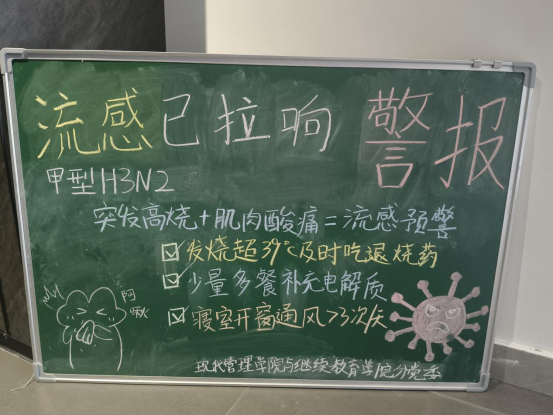 流感已拉响 警报
甲型H3N2
突发高烧+肌肉酸痛=流感预警
☑发烧超39℃及时吃退烧药
☑少量多餐补充电解质
☑寝室开窗通风>3次/天
阿啾
现代管理学院与继续教育学院分党委